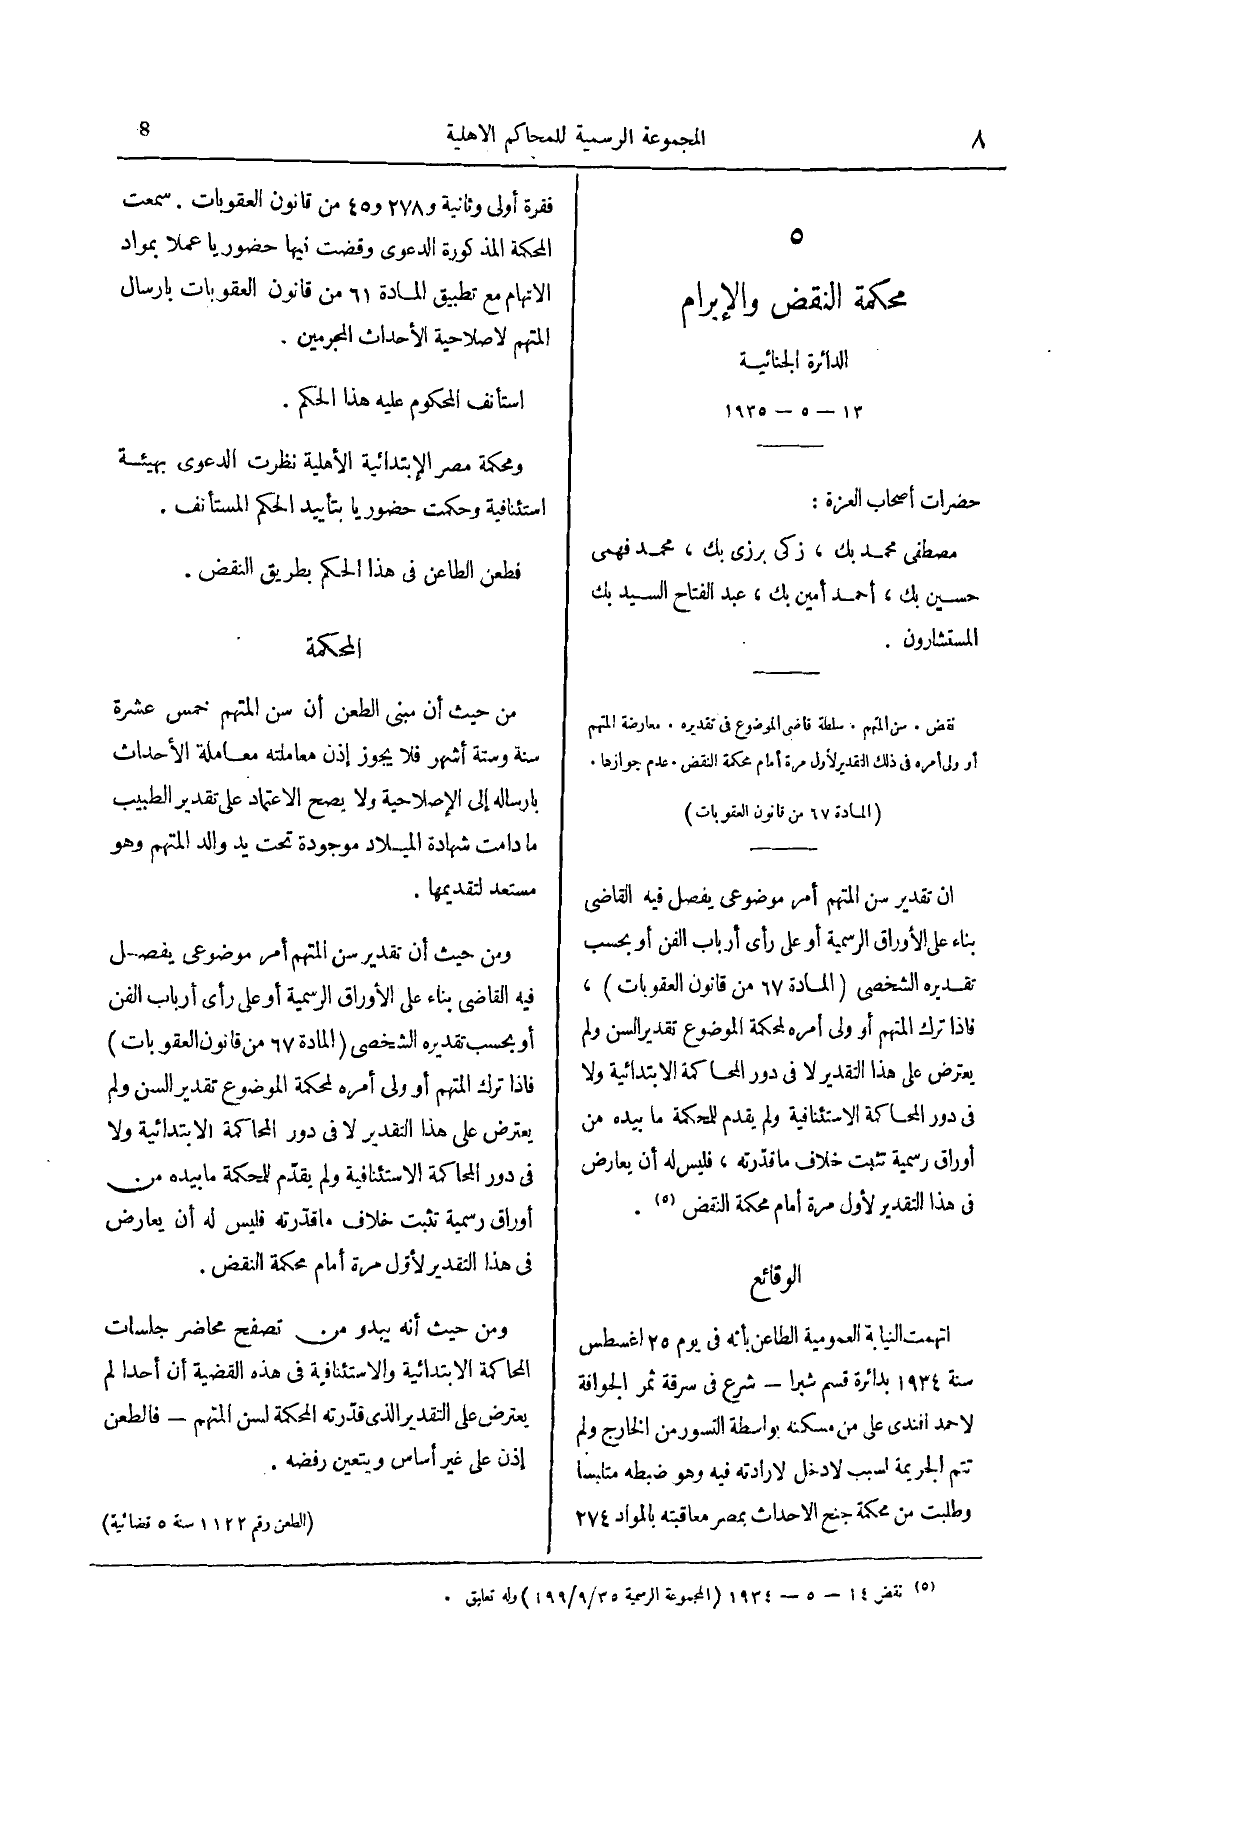 ٨
المجموعة الرسمية للمحاكم الاهلية
8
٥
محكمة النقض والإبرام
الدائرة الجنائية
١٣ — ٥ — ١٩٣٥
حضرات أصحاب العزة :
مصطفى محمد بك ، زكى برزى بك ، محمد فهمى
حسين بك ، أحمد أمين بك ، عبد الفتاح السيد بك
المستشارون .
نقض . سن المتهم . سلطة قاضى الموضوع فى تقديره . معارضة المتهم
أو ولى أمره فى ذلك التقدير لأول مرة أمام محكمة النقض . عدم جوازها .
(المادة ٦٧ من قانون العقوبات)
ان تقدير سن المتهم أمر موضوعى يفصل فيه القاضى
بناء على الأوراق الرسمية أو على رأى أرباب الفن أو بحسب
تقديره الشخصى (المادة ٦٧ من قانون العقوبات) ،
فاذا ترك المتهم أو ولى أمره لمحكمة الموضوع تقدير السن ولم
يعترض على هذا التقدير لا فى دور المحاكمة الابتدائية ولا
فى دور المحاكمة الاستئنافية ولم يقدم للمحكمة ما بيده من
أوراق رسمية تثبت خلاف ما قدّرته ، فليس له أن يعارض
فى هذا التقدير لأول مرة أمام محكمة النقض (٥) .
الوقائع
اتهمت النيابة العمومية الطاعن بأنه فى يوم ٢٥ اغسطس
سنة ١٩٣٤ بدائرة قسم شبرا — شرع فى سرقة ثمر الجوافة
لاحمد افندى على من مسكنه بواسطة التسور من الخارج ولم
تتم الجريمة لسبب لادخل لارادته فيه وهو ضبطه متلبسا
وطلبت من محكمة جنح الاحداث بمصر معاقبته بالمواد ٢٧٤
فقرة أولى وثانية و٢٧٨ و٤٥ من قانون العقوبات . سمعت
المحكمة المذكورة الدعوى وقضت فيها حضوريا عملا بمواد
الاتهام مع تطبيق المادة ٦١ من قانون العقوبات بارسال
المتهم لاصلاحية الأحداث المجرمين .
استأنف المحكوم عليه هذا الحكم .
ومحكمة مصر الإبتدائية الأهلية نظرت الدعوى بهيئة
استئنافية وحكمت حضوريا بتأييد الحكم المستأنف .
فطعن الطاعن فى هذا الحكم بطريق النقض .
المحكمة
من حيث أن مبنى الطعن أن سن المتهم خمس عشرة
سنة وستة أشهر فلا يجوز إذن معاملته معاملة الأحداث
بارساله إلى الإصلاحية ولا يصح الاعتماد على تقدير الطبيب
ما دامت شهادة الميلاد موجودة تحت يد والد المتهم وهو
مستعد لتقديمها .
ومن حيث أن تقدير سن المتهم أمر موضوعى يفصل
فيه القاضى بناء على الأوراق الرسمية أو على رأى أرباب الفن
أو بحسب تقديره الشخصى (المادة ٦٧ من قانون العقوبات)
فاذا ترك المتهم أو ولى أمره لمحكمة الموضوع تقدير السن ولم
يعترض على هذا التقدير لا فى دور المحاكمة الابتدائية ولا
فى دور المحاكمة الاستئنافية ولم يقدّم للمحكمة مابيده من
أوراق رسمية تثبت خلاف ماقدّرته فليس له أن يعارض
فى هذا التقدير لأوّل مرة أمام محكمة النقض .
ومن حيث أنه يبدو من تصفح محاضر جلسات
المحاكمة الابتدائية والاستئنافية فى هذه القضية أن أحدا لم
يعترض على التقدير الذى قدّرته المحكمة لسن المتهم — فالطعن
إذن على غير أساس ويتعين رفضه .
(الطعن رقم ١١٢٢ سنة ٥ قضائية)
(٥) نقض ١٤ — ٥ — ١٩٣٤ (المجموعة الرسمية ١٩٩/٩/٣٥) وله تعليق .